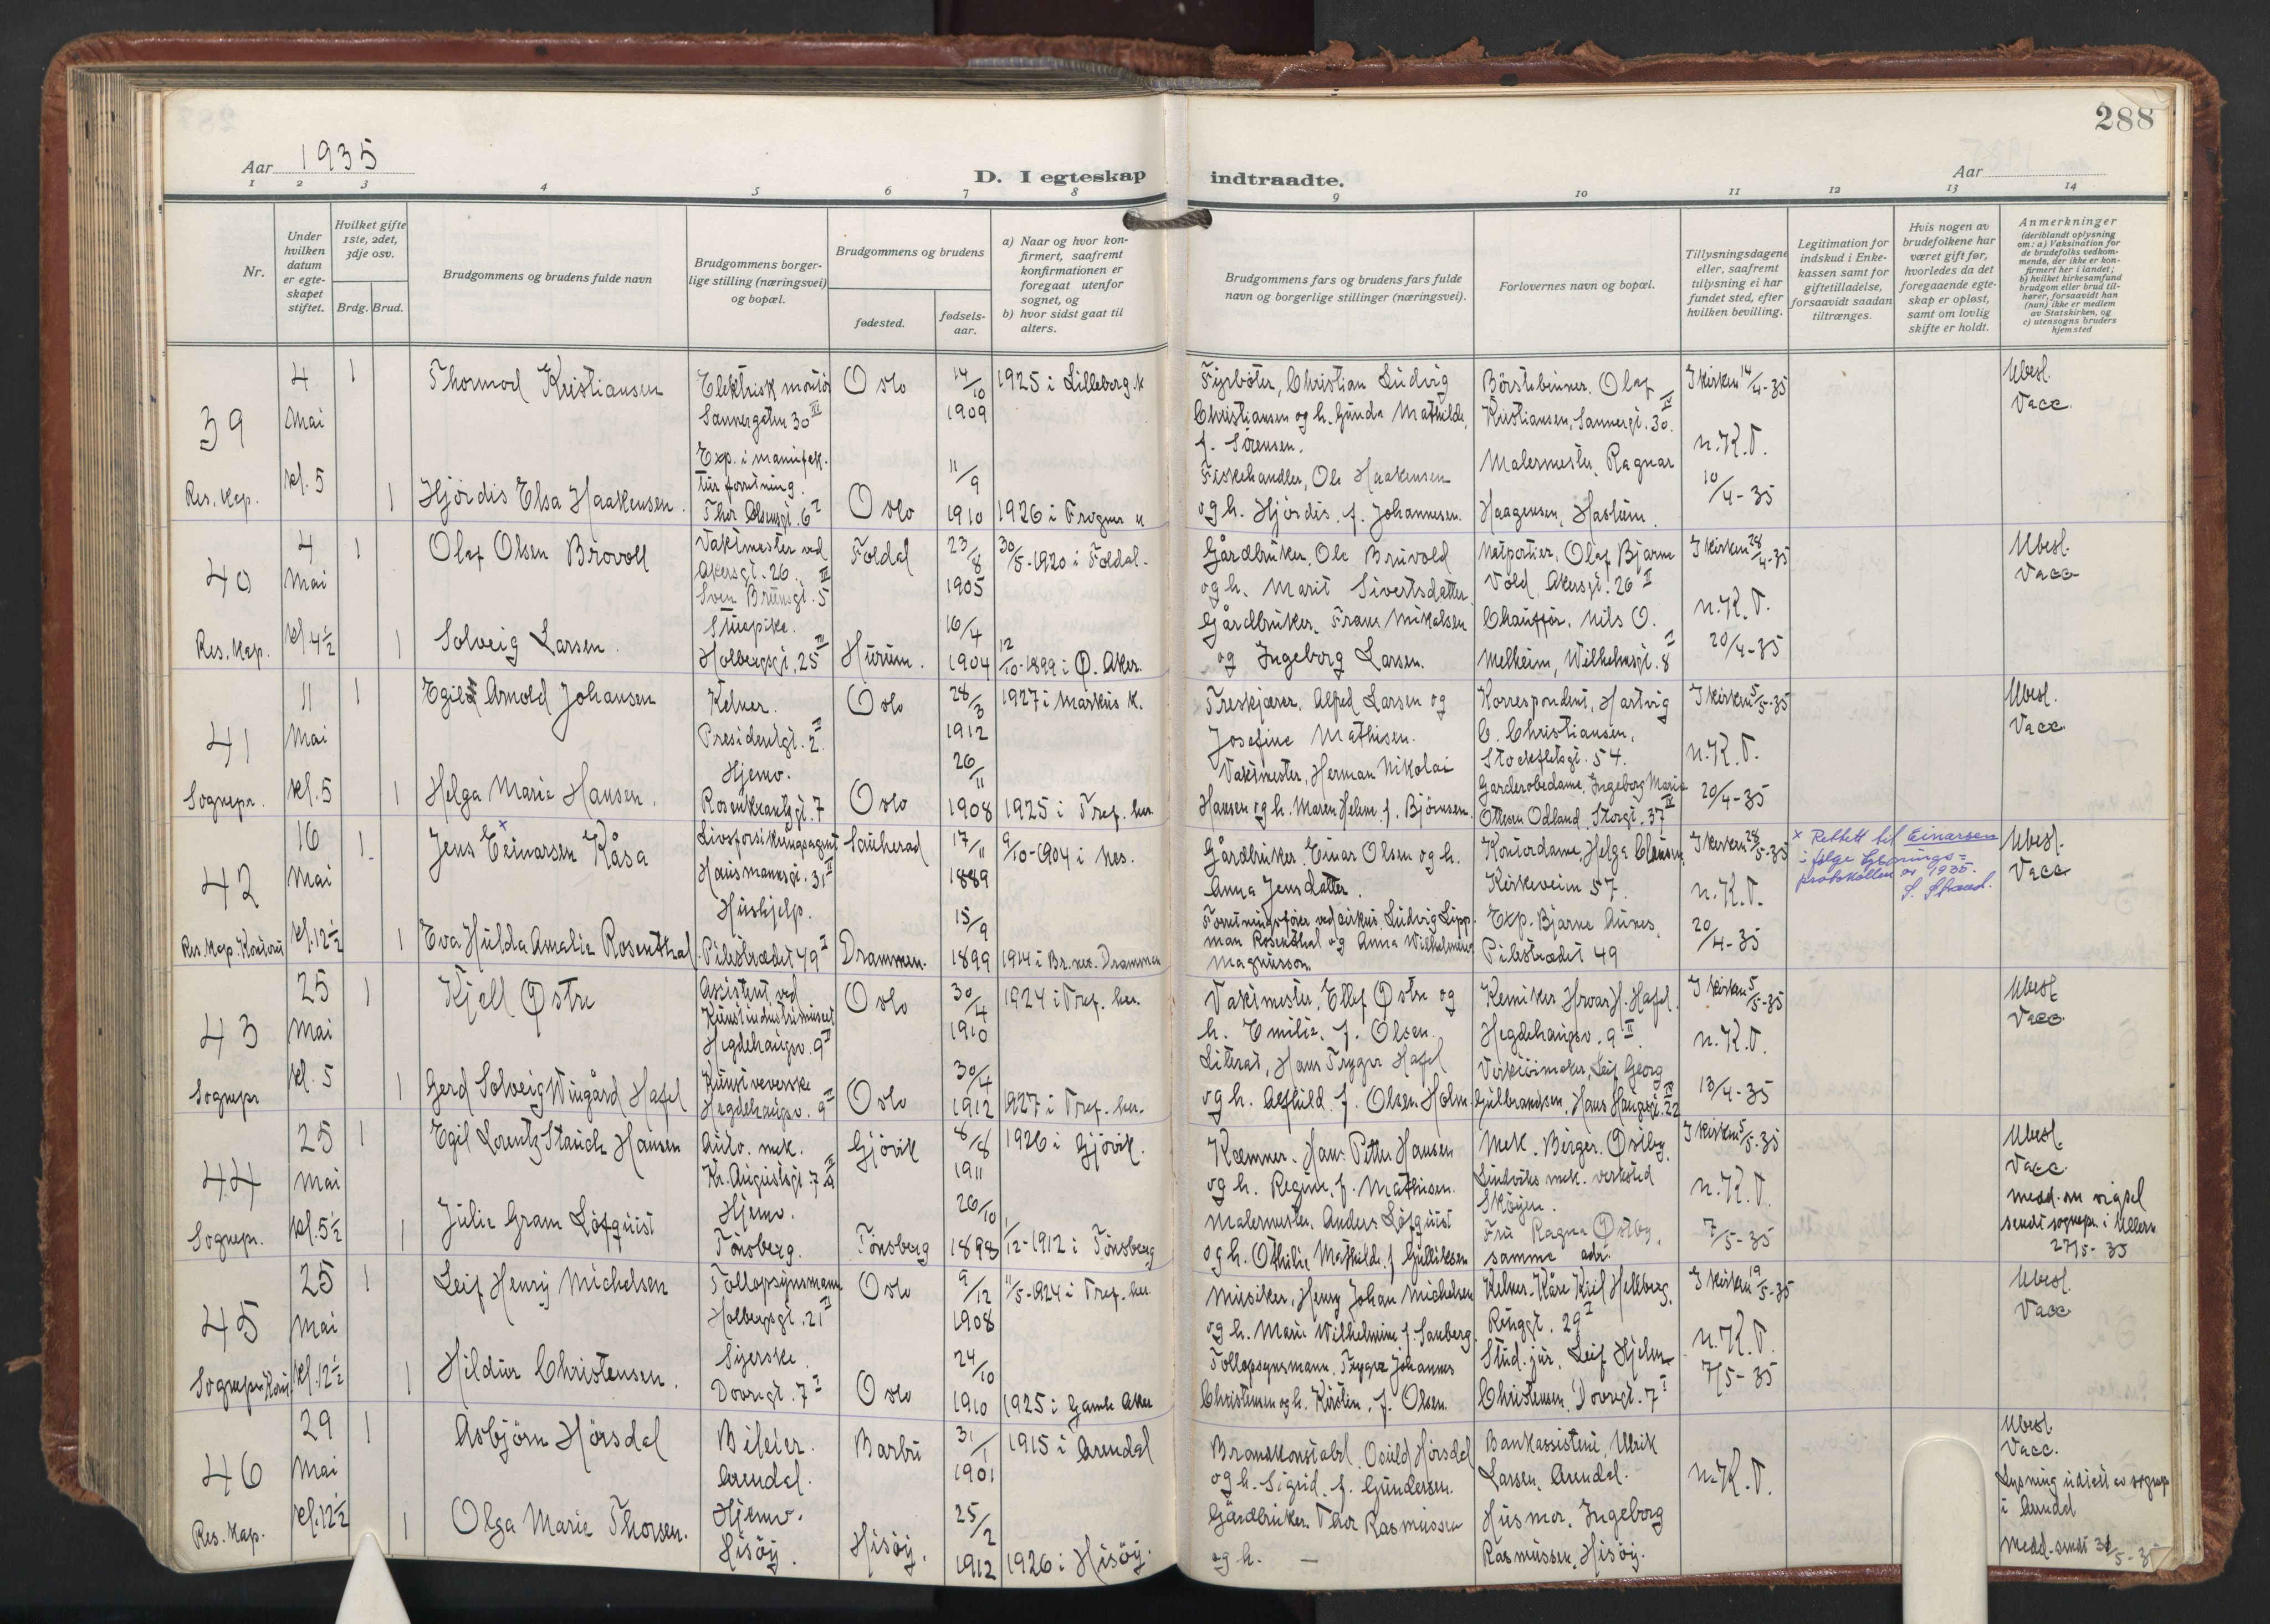 288
Aar 1935
D. I egteskap indtraadte.
Aar
1 2 3 4 5 6 7 8 9 10 11 12 13 14
Nr.
Under hvilken datum er egteskapet stiftet.
Hvilket gifte 1ste, 2det, 3dje osv.
Brdg. Brud.
Brudgommens og brudens fulde navn
Brudgommens borgerlige stilling (næringsvei) og bopæl.
Brudgommens og brudens
fødested.
fødselsaar.
a) Naar og hvor konfirmert, saafremt konfirmationen er foregaat utenfor sognet, og
b) hvor sidst gaat til alters.
Brudgommens fars og brudens fars fulde navn og borgerlige stillinger (næringsvei).
Forlovernes navn og bopæl.
Tillysningsdagene eller, saafremt tillysning ei har fundet sted, efter hvilken bevilling.
Legitimation for indskud i Enkekassen samt for giftetilladelse, forsaavidt saadan tiltrænges.
Hvis nogen av brudefolkene har været gift før, hvorledes da det foregaaende egteskap er opløst, samt om lovlig skifte er holdt.
Anmerkninger
(deriblandt oplysning om: a) Vaksination for de brudefolks vedkommende, der ikke er konfirmert her i landet;
b) hvilket kirkesamfund brudgom eller brud tilhører, forsaavidt han (hun) ikke er medlem av Statskirken, og
c) utensogns bruders hjemsted
39
Res. Kap.
4 Mai kl. 5
1
Thormod Kristiansen
Elektrisk montör
Sannergaten 30 III
Oslo
14/10 1909
1925 i Lilleborg k
Fyrböter, Christian Ludvig
Christiansen og h. Gunda Mathilde,
f. Sörensen.
Börstebinner. Olaf
Kristiansen, Sannergt. 30 IV
I kirken 14/4-35
n.K.T.
10/4-35
Ubesl.
Vacc.
1
Hjördis Elsa Haakensen.
Exp. i manufak.
tur forretning.
Thor Olsensgt. 6 I
Oslo
11/9 1910
1926 i Frogner k
Fiskehandler, Ole Haakensen
og h. Hjördis. f. Johannesen.
Malermester, Ragnar
Haagensen, Haslum.
40
Res. Kap.
4 Mai kl 4½
1
Olaf Olsen Brovoll
Vaktmester ved
Akersgt. 26. III
Sven Brunsgt. 5
Foldal
23/8 1905
30/5-1920 i Foldal.
Gårdbruker, Ole Bruvold
og h. Marit Sivertsdatter
Natportier, Olaf Bjarne
Vold, Akersgt. 26 II
I kirken 28/4-35
n.K.T.
20/4-35
Ubesl.
Vacc
1
Solveig Larsen.
Stuepike.
Holbergsgt. 25 III
Hurum.
16/4 1904
12/10-1899 i Ø. Aker.
Gårdbruker, Frans Mikalsen
og Ingeborg Larsen.
Chaufför. Nils O.
Melheim, Wilhelmsgt. 8 I
41
Sognepr.
11 Mai kl. 5
1
Egil Arnold Johansen
Kelner.
Presidentgt. 2 II
Oslo
28/3 1912
1927 i Markus k.
Treskjærer, Alfred Larsen og
Josefine Mathisen.
Korrespondent, Hartvig
C. Christiansen,
Stockfletsgt. 54.
I kirken 5/5-35
n.K.T.
20/4-35
Ubesl.
Vacc.
1
Helga Marie Hansen.
Hjemv.
Rosenkrantzgt. 7
Oslo
26/11 1908
1925 i Tref. her.
Vaktmester, Herman Nikolai
Hansen og h. Maren Helene f. Björnsen.
Garderobedame, Ingeborg Marie
Ottesen Odland. Storgt. 37 II
42
Res. Kap. Kontoru
16 Mai kl. 12½
1
Jens Eeinarsen Kåsa
Livsforsikringsagent
Hausmannsgt. 31 II
Sauherad
17/11 1889
9/10-1904 i Nes.
Gårdbruker. Einar Olsen og h.
Anna Jensdatter.
Kontordame, Helga Clausen
Kirkeveien 57.
I kirken 28/5-35
n.K.T.
20/4-35
x Rettett til Einarsen
i følge
protokollen av 1935.
S. Strand.
Ubesl.
Vacc
1
Eva Hulda Amalie Rosenthal.
Hushjelp.
Pilestrædet 49 I
Drammen.
15/9 1899
1914 i Br.nes. Drammen
Forretningsförer ved cirkus. Ludvig Lipp.
man Rosenthal og Anna Wilhelmine
Magnusson.
Exp. Bjarne Aunes.
Pilestrædet 49
43
Sognepr
25 Mai kl. 5
1
Kjell Østre
Assistent ved
Kunstindustrimuseet
Hegdehaugsv. 9 II
Oslo
30/4 1910
1924 i Tref. her.
Vaktmester, Ellef Østre og
h. Emilie. f. Olsen.
Kemiker Hroar H. Hafel.
Hegdehaugsv. 9 II
I kirken 5/5-35
n.K.T.
13/4-35
Ubesl.
Vacc.
1
Gerd Solveig Wingård Hafel
Kunstveverske
Hegdehaugsv. 9 II
Oslo
30/4 1912
1927 i Tref. her.
Literat, Hans Trygve Hafel
og h. Alfhild. f. Olsen Holm.
Verktöimaker, Leif Georg
Gulbrandsen, Hans Haugesgt. 22
44
Sognepr.
25 Mai kl. 5½
1
Egil Lorentz Stauch Hansen
Auto. mek.
Kr. Augustsgt. 7
Gjövik
8/8 1911
1926 i Gjövik.
Kæmner. Hans Petter Hansen
og h. Regine. f. Mathisen.
Mek. Birger. Østby.
Lindviks mek. verksted
Sköyen.
I kirken 5/5-35
n.K.T.
7/5-35
Ubesl.
Vacc.
medd. om vigsel
sendt sognepr. i Ullern
27/5-35
1
Julie Gram Löfquist
Hjemv.
Tönsberg.
Tönsberg
26/10 1898
1/12-1912 i Tönsberg
Malermester, Anders Löfquist
og h. Othilie Mathilde f Gulliksen
Fru Ragna Østby,
samme adr.
45
Sognepr. Kont
25 Mai kl. 12½
1
Leif Henry Michelsen
Tollopsynsmann
Holbergsgt. 21 II
Oslo
9/12 1908
11/5-1924 i Tref. her
Musiker, Henry Johan Michelsen
og h. Marie Wilhelmine f. Sauberg.
Kelner. Kåre Kiel Hellberg.
Ringgt. 29 I
I kirken 19/5-35
n.K.T.
7/5-35
Ubesl.
Vacc
1
Hildur Christensen.
Syerske.
Dovregt. 7 I
Oslo
24/10 1910
1925 i Gamle Aker
Tollopsynsmann. Trygve Johannes
Christensen og h. Kirsten, f. Olsen.
Stud. jur. Leif Hjelm
Christensen, Dovregt. 7 I
46
Res. Kap.
29 Mai kl. 12½
1
Asbjörn Hörsdal
Bileier.
Arendal.
Barbu
31/1 1901
1915 i Arendal
Brannkonstabel. Osuld Hörsdal
og h. Sigrid. f. Gundersen.
Bankassistent, Ulrik
Larsen, Arendal.
n.K.T.
Ubesl.
Vacc.
Lysning utført av sognepr
i Arendal
Medd. sendt 31/5-35
1
Olga Marie Thorsen.
Hjemv.
Hisöy.
Hisöy.
25/2 1912
1926 i Hisöy.
Gårdbruker. Thor Rasmussen
og h. –
Husmor. Ingeborg
Rasmussen, Hisöy.